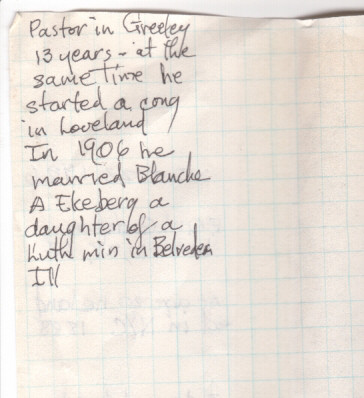 Pastor in Greeley
13 years - at the
same time he
started a cong
in Loveland
In 1906 he
married Blanche
A Ekeberg a
daughter of a
Luth min in Belvedere
Ill